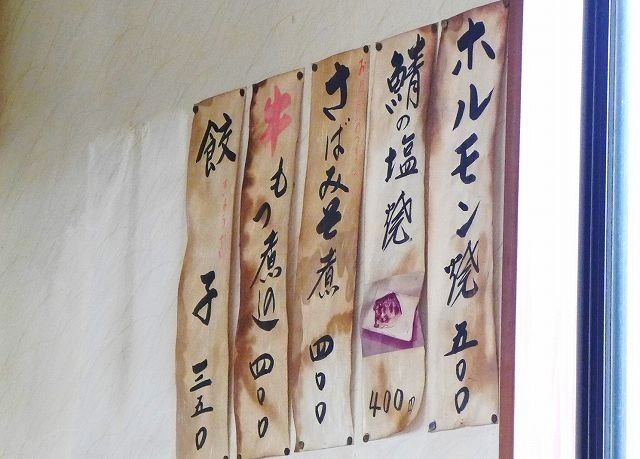 ホルモン焼 五〇〇
鯖の塩焼 400円
さばみそ煮 四〇〇
牛もつ煮込 四〇〇
餃子 三五〇